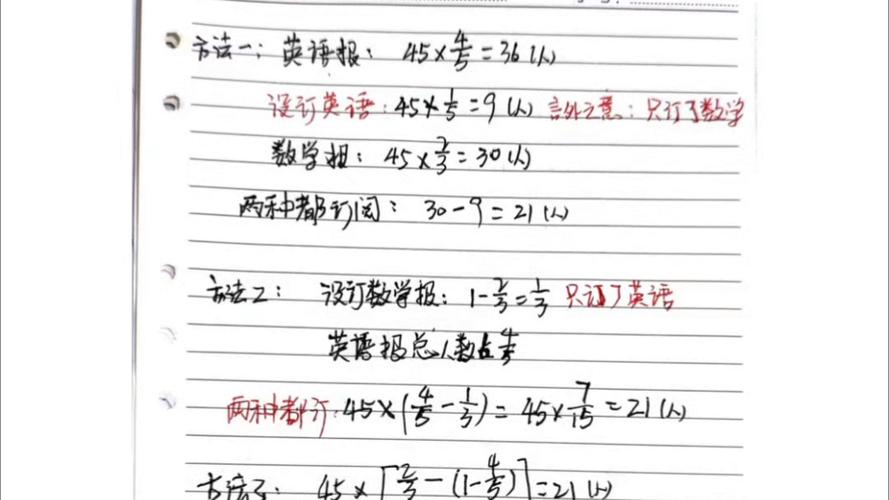 方法一：英语报：45×4/5=36(人)
没订英语：45×1/5=9(人) 言外之意：只订了数学
数学报：45×2/3=30(人)
两种都订阅：30-9=21(人)
方法2：没订数学报：1-2/3=1/3 只订了英语
英语报总人数占4/5
两种都订：45×(4/5-1/3)=45×7/15=21(人)
方法3：45×[2/3-(1-4/5)]=21(人)